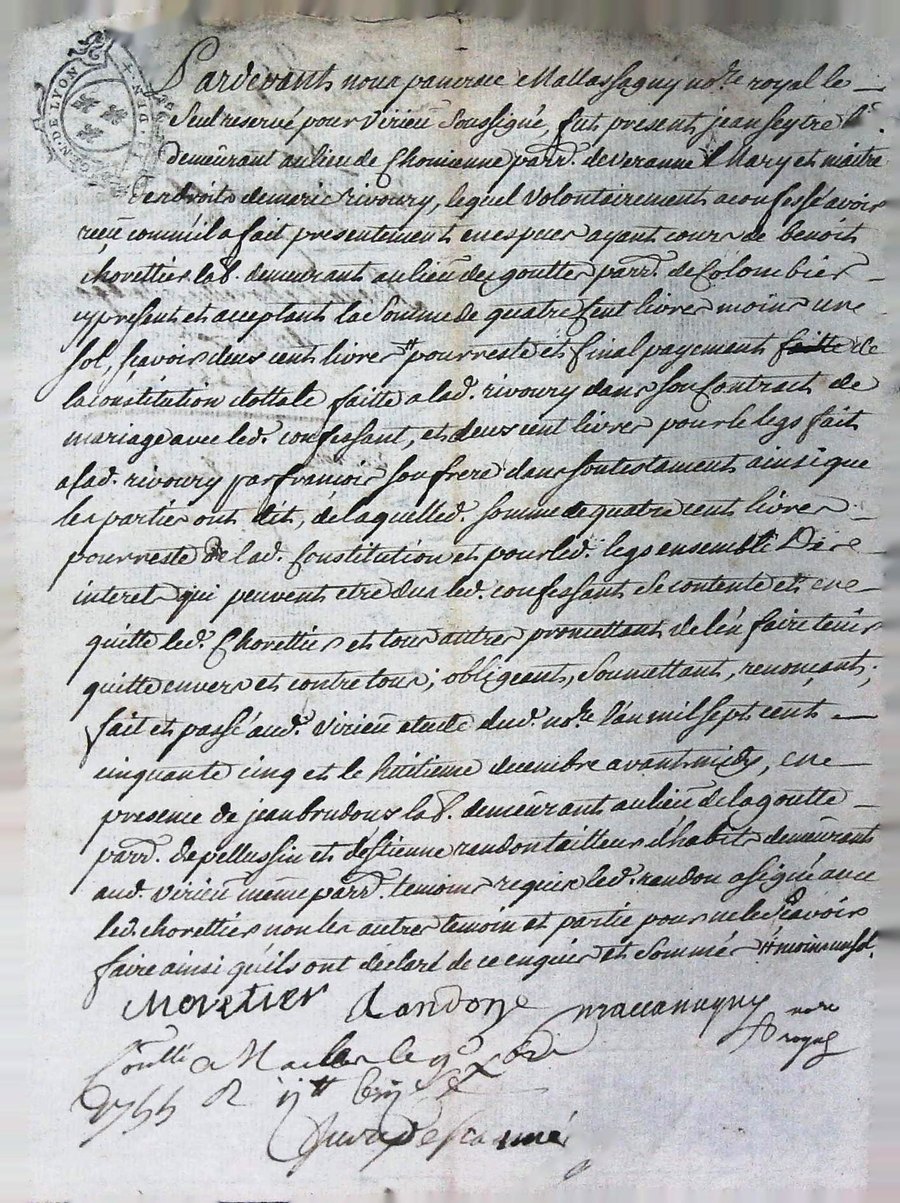 GEN. DE LYON
Pardevant nous pancrace Mallassagny no.re royal le
Seul reservé pour Virieu Soussigné, fut present jean seytre l.r
demeurant au lieu de Chonianne parr. de veranne Mary et maitre
des droits de marie rivoury, lequel volontairement a confessé avoir
reçu comm'il a fait presentement en especes ayant cours de benoit
chorettier lab. demeurant au lieu des goutte parr. de Colombier
cy present et acceptant la Somme de quatre Cent livres moins une
sol, sçavoir deux cent livres # pour reste et final payement faitte de
la constitution dottale faitte a lad. rivoury dans son Contract de
mariage avec led. confessant, et deux cent livres pour le legs fait
a lad. rivoury par francois son frere dans son testament ainsi que
les parties ont dit, de laquelled. somme de quatre cent livres
pour reste de lad. Constitution et pour led. legs ensemble Des
interets qui peuvent etre dus led. confessant se contente et en
quitte led. Chorettier et tous autres promettant de l'en faire tenir
quitte envers et contre tous; obligeant, Soumettant, renonçant;
fait et passé aud. Virieu etude dud. no.re l'an mil sept cent
cinquante cinq et le huitieme decembre avant midy, en
presence de jean brudons lab. demeurant au lieu de la goutte
parr. de pellussin et d'estienne randon tailleur d'habits demeurant
aud. Virieu meme parr. temoins requis led. randon a signé avec
led. chorettier non les autres temoin et partie pour ne le Sçavoir
faire ainsi qu'ils ont declaré de ce enquis et Sommés # moins un sol.
Choretier Randon
nore
royal
a le 9e
1755